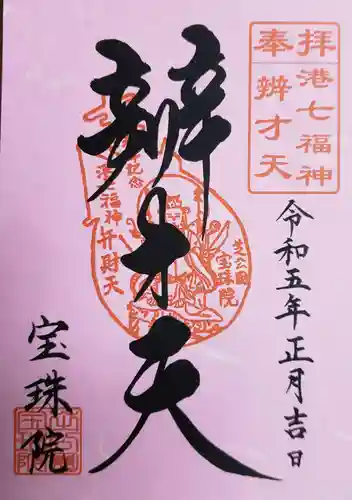 奉拝
港七福神
辨才天
令和五年正月吉日
辨才天
港七福神
弁財天
芝公園
宝珠院
宝珠院